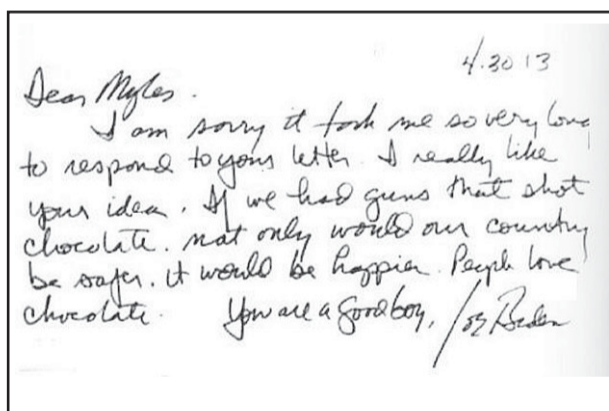 4.30 13
Dear Myles.
I am sorry it took me so very long
to respond to your letter. I really like
your idea. If we had guns that shot
chocolate. not only would our country
be safer. it would be happier. People love
chocolate. You are a good boy, Joe Biden